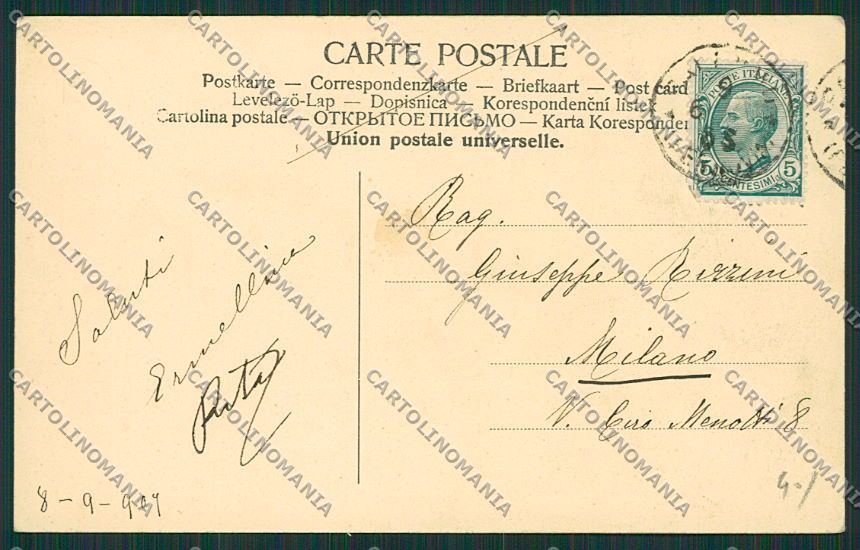 CARTE POSTALE
Postkarte — Correspondenzkarte — Briefkaart — Post card
Levelező-Lap — Dopisnica — Korespondenční lístek
Cartolina postale — ОТКРЫТОЕ ПИСЬМО — Karta Koresponden
Union postale universelle.
POSTE ITALIANE
5 5
CENTESIMI
Rag.
Giuseppe Rizzini
Milano
V. Ciro Menotti 8
Saluti
Ermellina
8 - 9 - 9
CARTOLINOMANIA